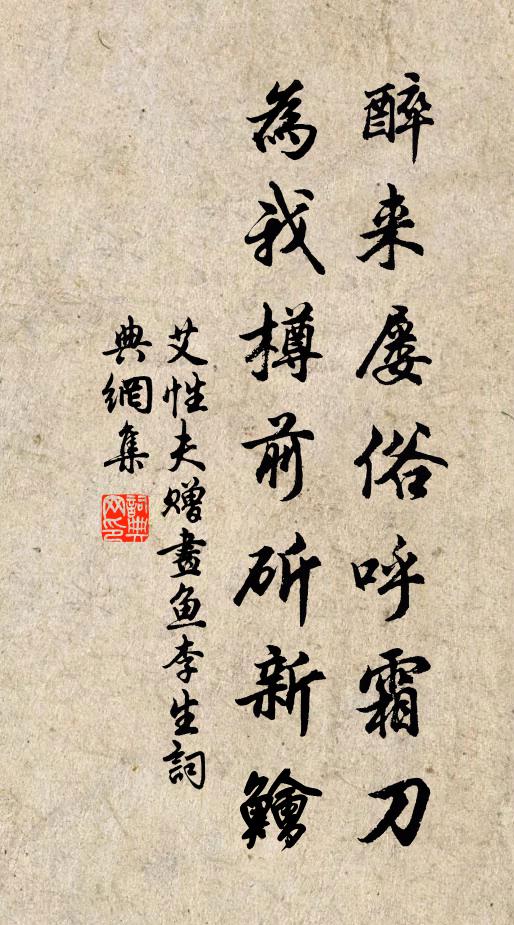 醉来屡俗呼霜刀
為我樽前斫新鱠
艾性夫赠畫鱼李生詞
典網集
詞典
网印